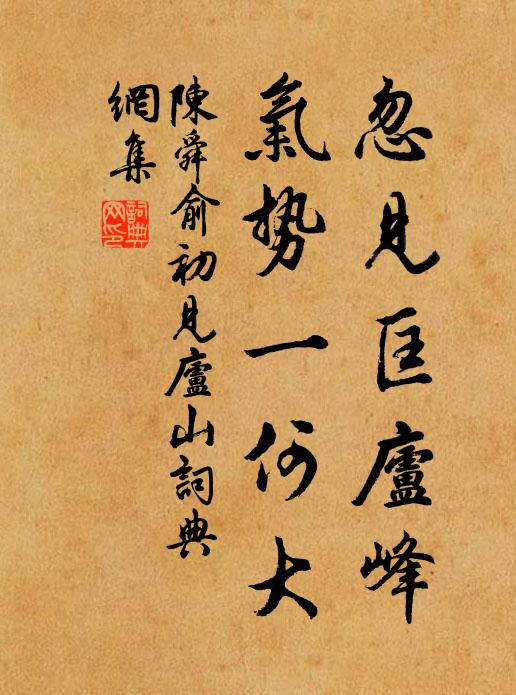 忽見匡廬峰
氣勢一何大
陳舜俞初見廬山詞典
網集
詞典
网印